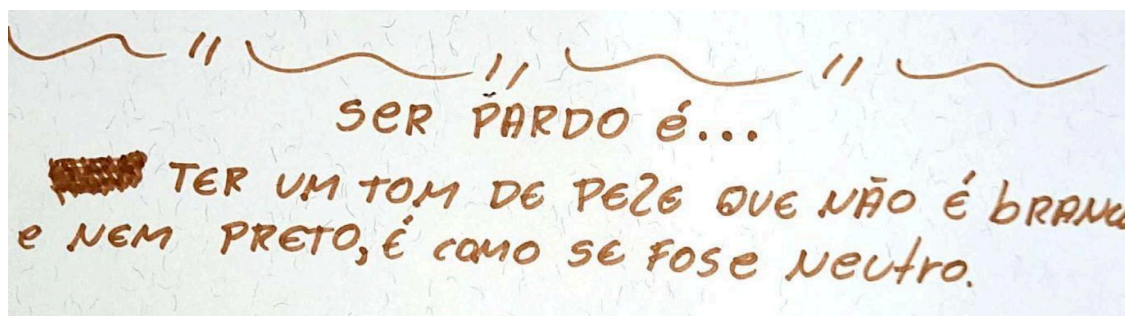 SER PARDO É...
TER UM TOM DE PELE QUE NÃO É BRANCO
E NEM PRETO, É COMO SE FOSE NEUTRO.